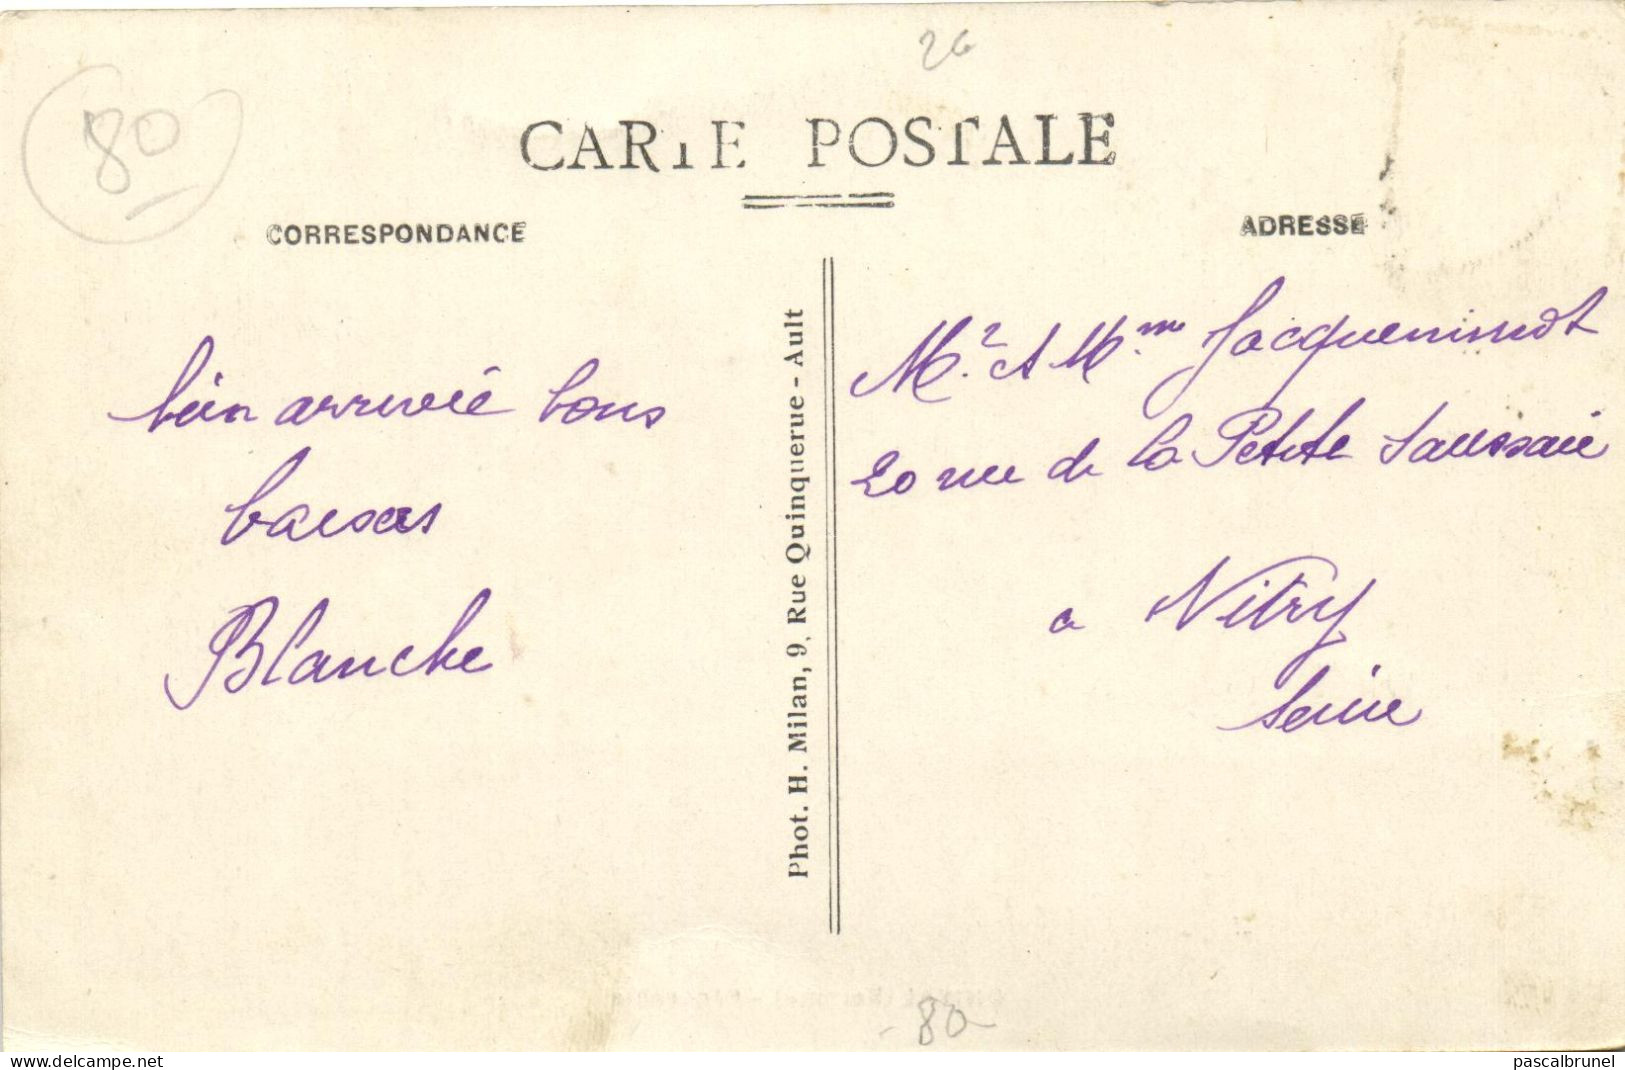 26
80
CARTE POSTALE
CORRESPONDANCE
ADRESSE
bien arrivée bons
baisers
Blanche
Phot. H. Milan, 9, Rue Quinquerue - Ault
Mr. et Mme Jacqueminot
20 rue de la Petite Saussaie
a Vitry
Seine
80
www.delcampe.net
pascalbrunel